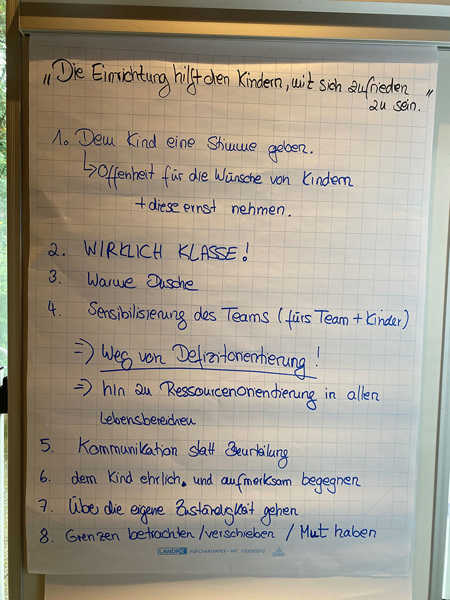 „Die Einrichtung hilft den Kindern, mit sich zufrieden
zu sein."
1. Dem Kind eine Stimme geben.
↳ Offenheit für die Wünsche von Kindern
+ diese ernst nehmen.
2. WIRKLICH KLASSE!
3. Warme Dusche
4. Sensibilisierung des Teams (fürs Team + Kinder)
=> Weg von Defizitorientierung!
=> hin zu Ressourcenorientierung in allen
Lebensbereichen
5. Kommunikation statt Beurteilung
6. dem Kind ehrlich und aufmerksam begegnen
7. Über die eigene Zuständigkeit gehen
8. Grenzen betrachten / verschieben / Mut haben
LANDRÉ